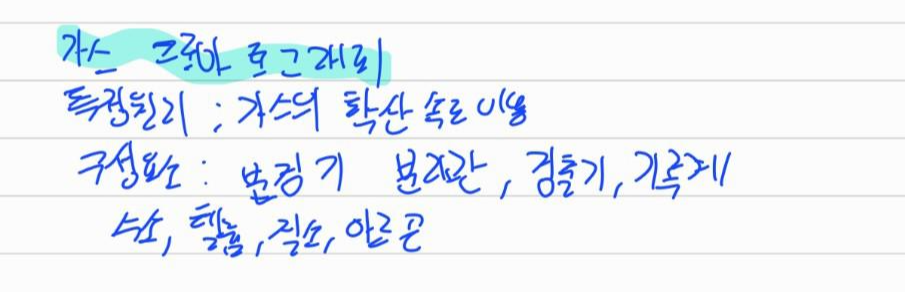 가스 크로마토그래피
측정원리 : 가스의 확산 속도 이용
구성요소 : 분리관, 검출기, 기록계
수소, 헬륨, 질소, 아르곤